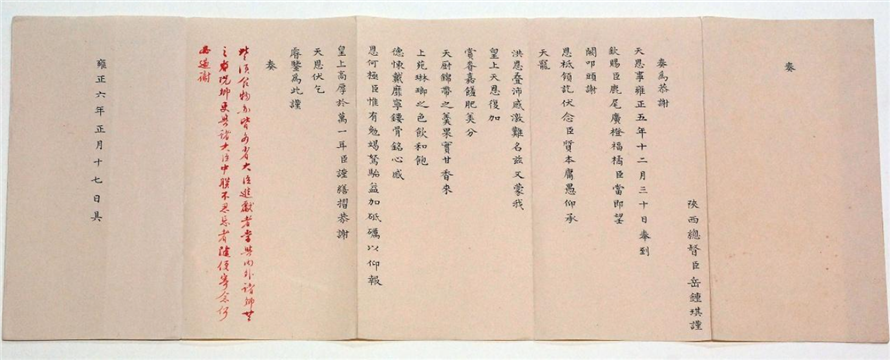 奏
陝西總督臣岳鍾琪謹
奏為恭謝
天恩事雍正五年十二月三十日奉到
欽賜臣鹿尾廣橙福橘臣當即望
闕叩頭謝
恩祗領訖伏念臣質本庸愚仰承
天寵
洪恩疊沛感激難名茲又蒙我
皇上天恩復加
賞眷嘉饈肥美分
天廚錦帶之羹果實甘香來
上苑琳瑯之色飲和飽
德悚戴靡寧鏤骨銘心感
恩何極臣惟有勉竭駑駘益加砥礪以仰報
皇上高厚於萬一耳臣謹繕摺恭謝
天恩伏乞
睿鑒為此謹
奏
此項食物為皆各省大臣進獻者
雍正六年正月十七日具